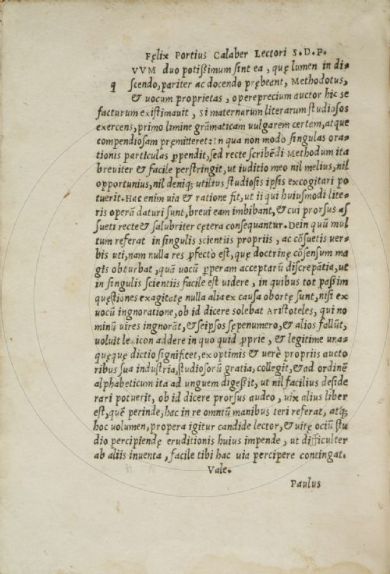 Felix Portius Calaber Lectori S.D.P.
VVM duo potissimum sint ea, quę lumen in di⸗
q scendo, pariter ac docendo prębeant, Methodotus,
& uocum proprietas, opereprecium auctor hic se
facturum existimauit, si maternarum literarum studiosos
exercens, primo limine grāmaticam uulgarem certam, atque
compendiosam pręmitteret: in qua non modo singulas ora⸗
tionis particulas ꝑpendit, sed recte scribēdi Methodum ita
breuiter & facile perstringit, ut iuditio meo nil melius, nil
opportunius, nil deniq; utilius studiosis ipsis excogitari po
tuerit. Hac enim uia & ratione fit, ut ii qui huiusmodi lite⸗
ris operā daturi sunt, breui eam imbibant, & cui prorsus as
sueti recte & salubriter cętera consequantur. Dein quū mul
tum referat in singulis scientiis propriis, ac cōsuetis uer⸗
bis uti, nam nulla res ꝓfecto est, quę doctrinę cōsensum ma
gis obturbat, quā uocū ꝑperam acceptarū discrepātia, ut
in singulis scientiis facile est uidere, in quibus tot passim
quęstiones exagitatę nulla alia ex causa obortę sunt, nisi ex
uocū ingnoratione, ob id dicere solebat Aristoteles, qui no
minū uires ingnorāt, & seipsos sępenumero, & alios fallūt,
uoluit lexicon addere in quo quid ꝓprie, & legitime una⸗
quęquę dictio significet, ex optimis & uerè propriis aucto
ribus sua industria, studiosorū gratia, collegit, & ad ordinē
alphabeticum ita ad unguem digessit, ut nil facilius deside
rari potuerit, ob id dicere prorsus audeo, uix alius liber
est, quē perinde, hac in re omniū manibus teri referat, atq;
hoc uolumen, propera igitur candide lector, & uitę ociū stu
dio percipiendę eruditionis huius impende, ut difficulter
ab aliis inuenta, facile tibi hac uia percipere contingat.
Vale.
Paulus